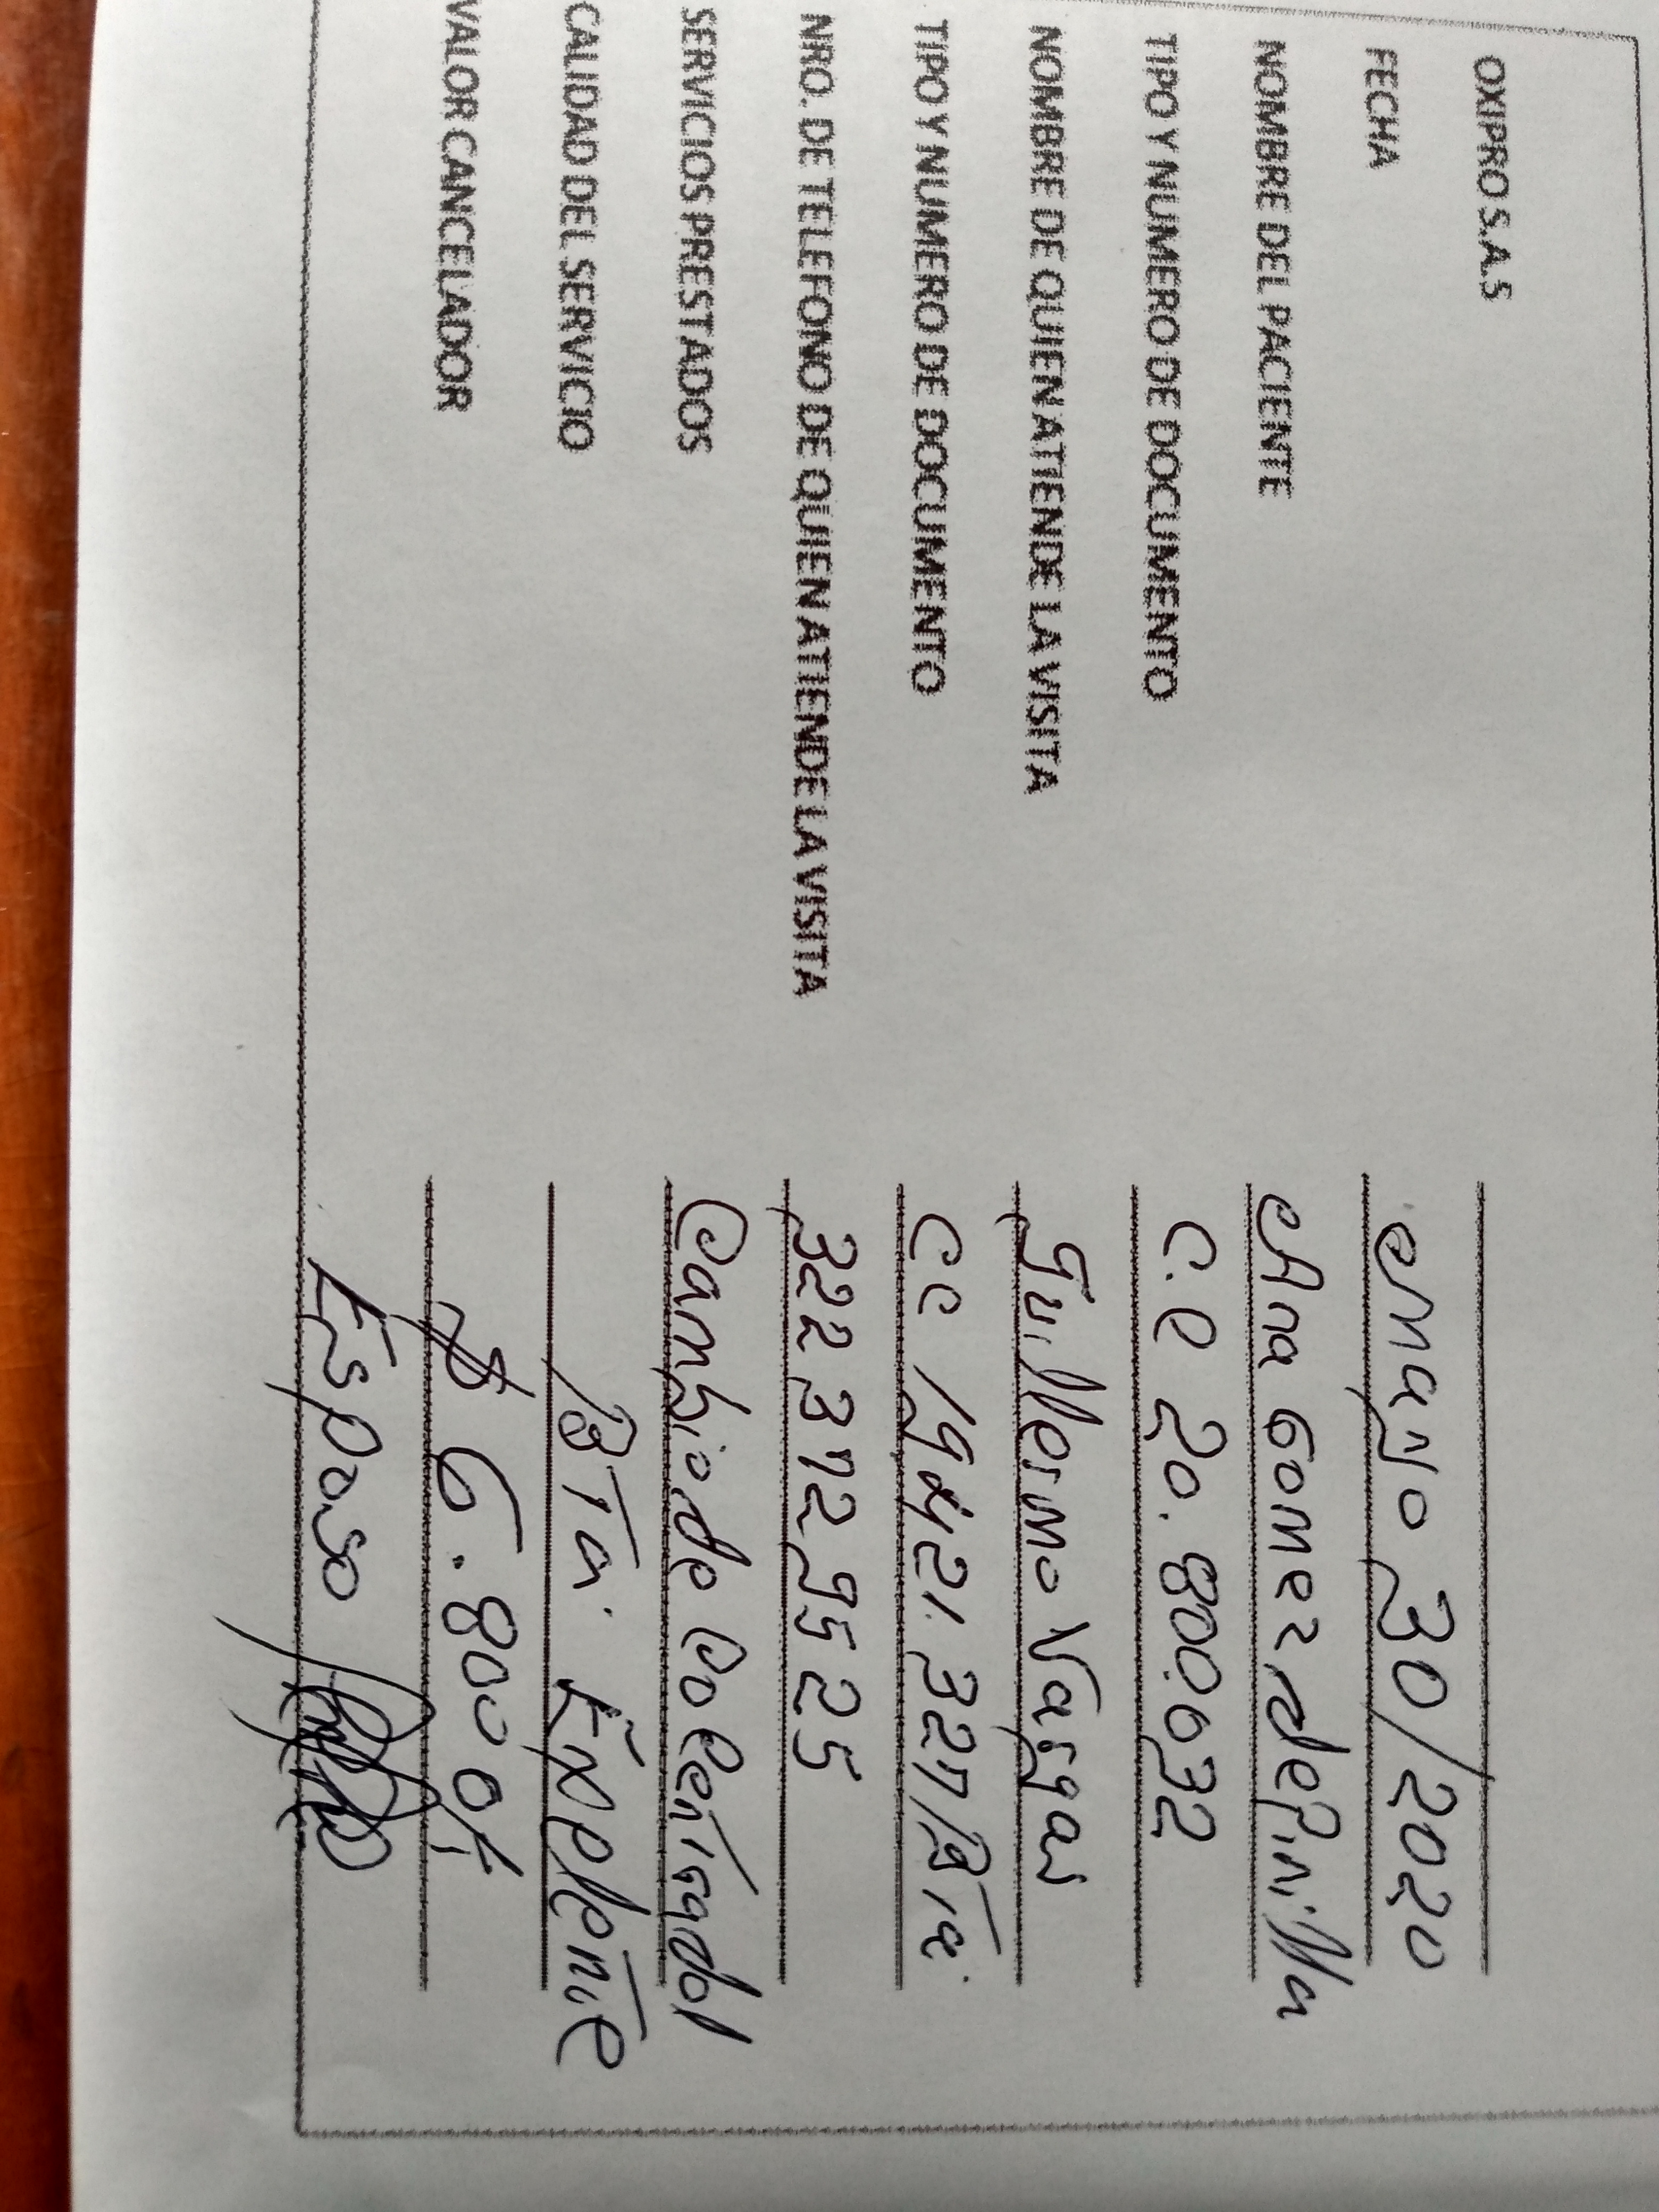 OXIPRO S.A.S
FECHA Mayo 30/2020
NOMBRE DEL PACIENTE Ana Gomez de Pinilla
TIPO Y NUMERO DE DOCUMENTO C.C 20.800.632
NOMBRE DE QUIEN ATIENDE LA VISITA Guillermo Vargas
TIPO Y NUMERO DE DOCUMENTO CC 19421.327/Bta.
NRO. DE TELEFONO DE QUIEN ATIENDE LA VISITA 322 372 95 25
SERVICIOS PRESTADOS Cambio de
CALIDAD DEL SERVICIO Bta. Exelente
VALOR CANCELADOR $ 6.800
Esposo